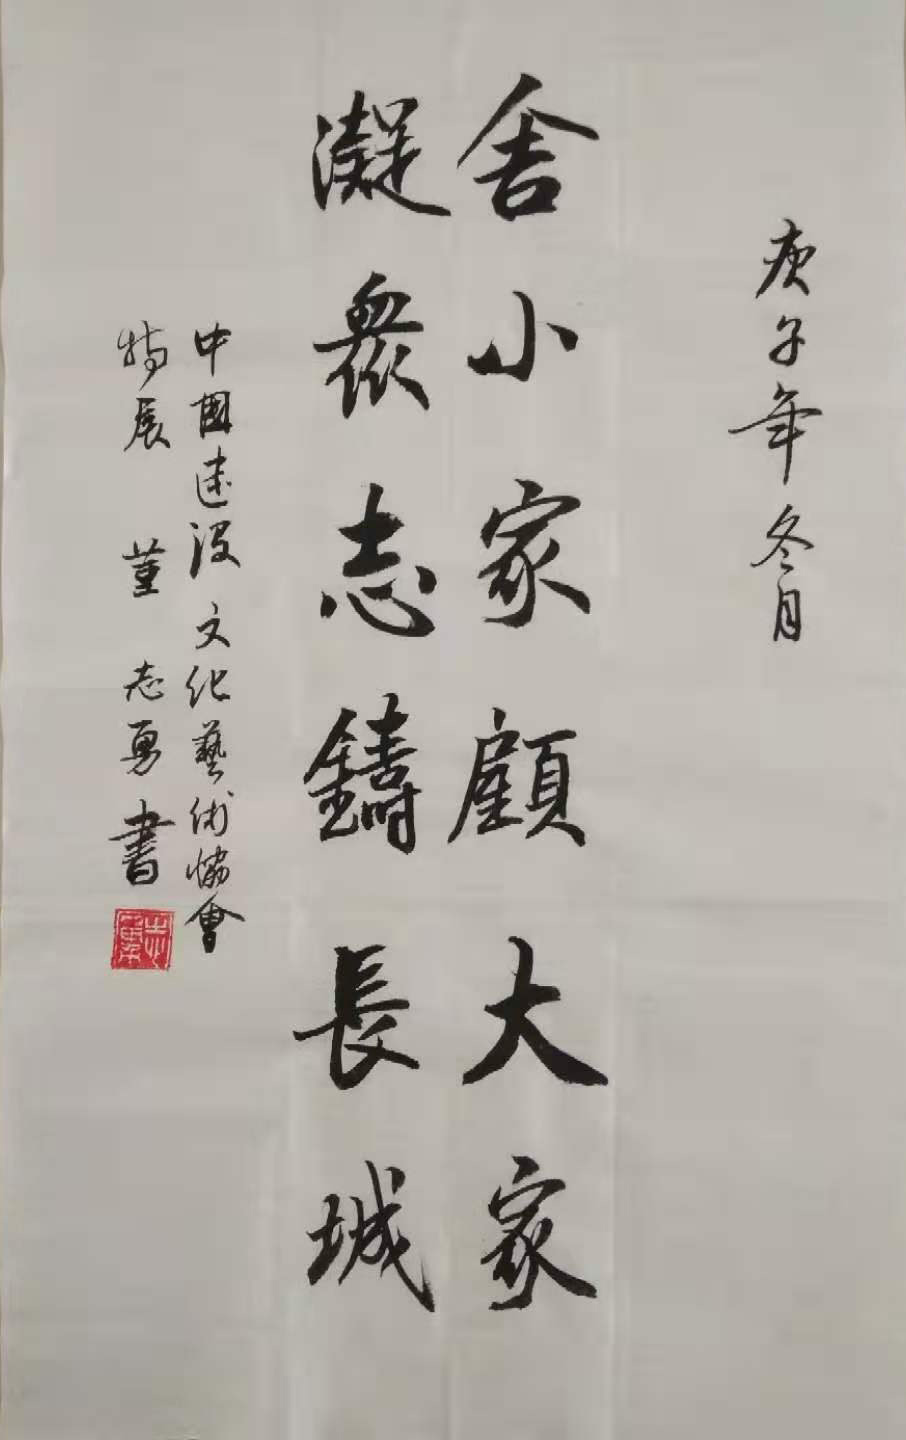 庚子年冬月
舍小家顧大家
凝衆志鑄長城
中國建设文化藝術恊會
特展 董志勇書